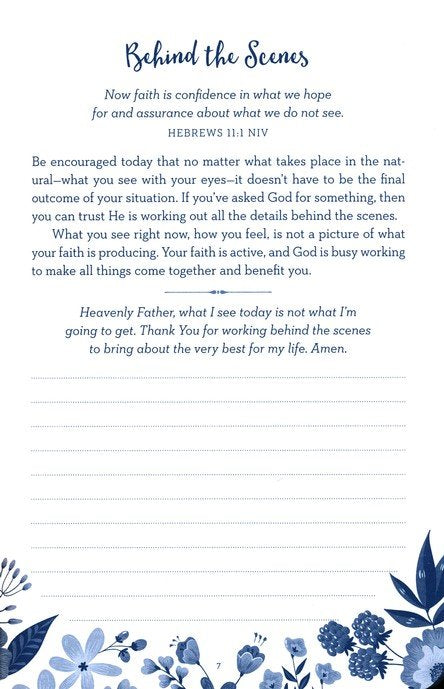 Behind the Scenes
Now faith is confidence in what we hope
for and assurance about what we do not see.
HEBREWS 11:1 NIV
Be encouraged today that no matter what takes place in the nat-
ural—what you see with your eyes—it doesn't have to be the final
outcome of your situation. If you've asked God for something, then
you can trust He is working out all the details behind the scenes.
What you see right now, how you feel, is not a picture of what
your faith is producing. Your faith is active, and God is busy working
to make all things come together and benefit you.
Heavenly Father, what I see today is not what I'm
going to get. Thank You for working behind the scenes
to bring about the very best for my life. Amen.
7